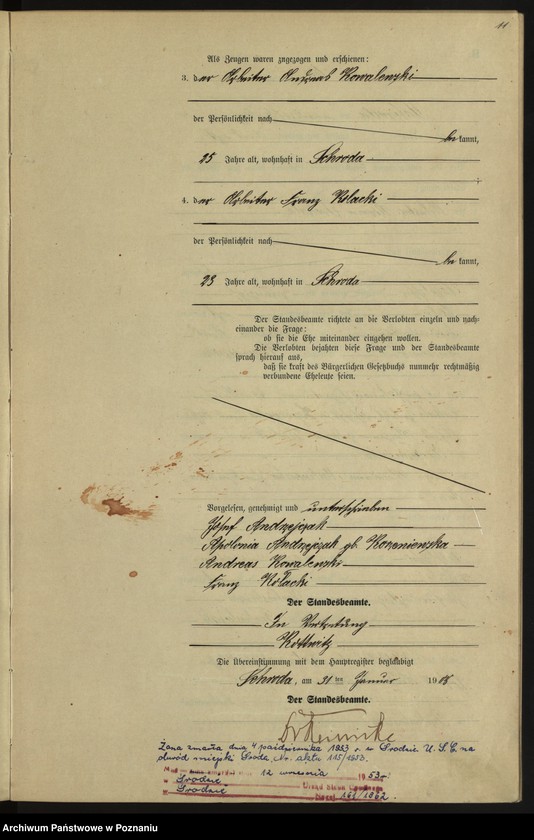 11
Als Zeugen waren zugezogen und erschienen:
3. der Arbeiter Andreas Kowalewski
der Persönlichkeit nach
be kannt,
25 Jahre alt, wohnhaft in Schroda
4. der Arbeiter Franz Kolacki
der Persönlichkeit nach
be kannt,
23 Jahre alt, wohnhaft in Schroda
Der Standesbeamte richtete an die Verlobten einzeln und nach=
einander die Frage:
ob sie die Ehe miteinander eingehen wollen.
Die Verlobten bejahten diese Frage und der Standesbeamte
sprach hierauf aus,
daß sie kraft des Bürgerlichen Gesetzbuchs nunmehr rechtmäßig
verbundene Eheleute seien.
Vorgelesen, genehmigt und unterschrieben
Józef Andrzejczak
Apolonia Andrzejczak gb. Korzeniewska
Andreas Kowalewski
Franz Kołacki
Der Standesbeamte.
In Vertretung
Kottwitz
Die Übereinstimmung mit dem Hauptregister beglaubigt
Schroda, am 31 ten Januar 19
Der Standesbeamte.
Żona zmarła dnia 4 października 1953 r. w Środzie U.S.C. na
obwód miejski Środa, Nr. aktu 115/1953.
12 września 1953 r.
w Środzie
Urząd Stanu Cywilnego
w Środzie 161/1962.
Archiwum Państwowe w Poznaniu